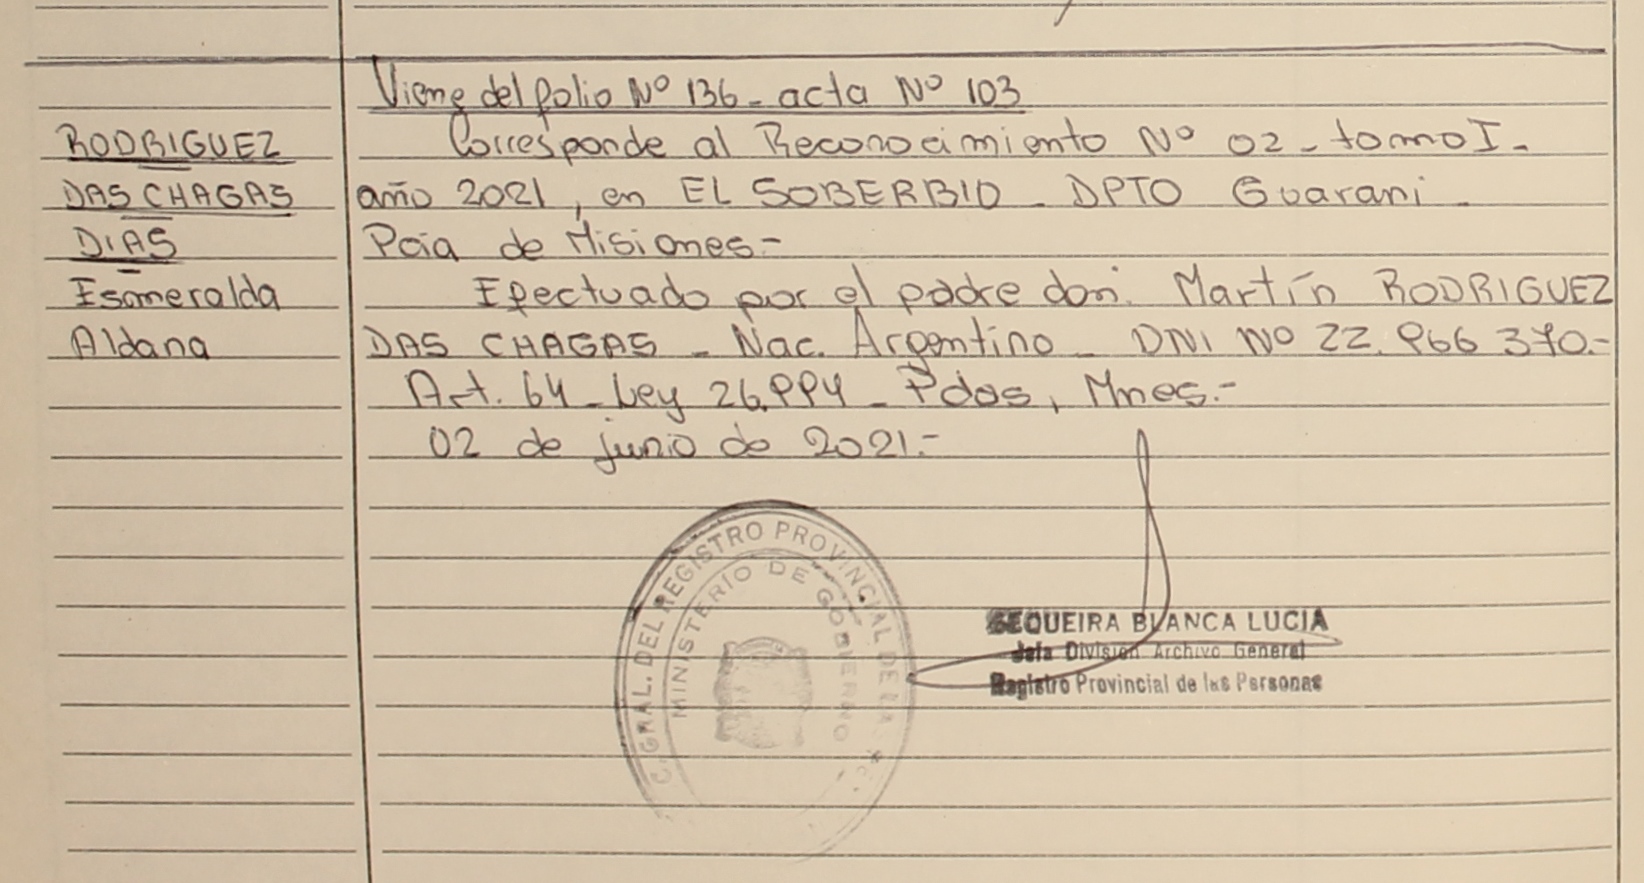 Viene del folio Nº 136_ acta Nº 103
RODRIGUEZ
Corresponde al Reconocimiento Nº 02 _ tomo I.
DAS CHAGAS
año 2021, en EL SOBERBIO _ DPTO Guarani _
DIAS
Pcia de Misiones.-
Esmeralda
Efectuado por el padre don: Martín RODRIGUEZ
Aldana
DAS CHAGAS _ Nac. Argentino _ DNI Nº 22.966 370.-
Art. 64 _ Ley 26.994 _ Pdas, Mnes.-
02 de junio de 2021.-
GRAL. DEL REGISTRO PROVINCIAL DE LA
MINISTERIO DE GOBIERNO
SEQUEIRA BLANCA LUCIA
Jefa División Archivo General
Registro Provincial de las Personas